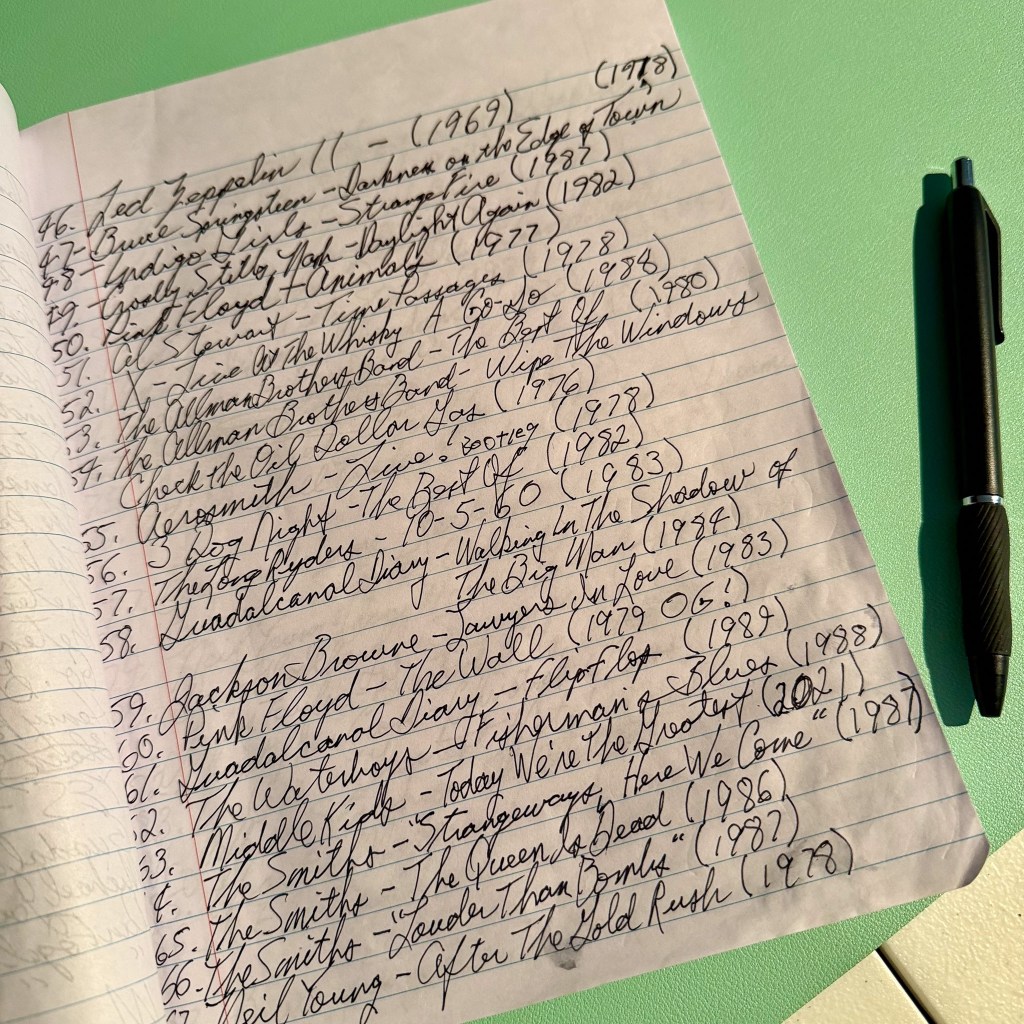 (1978)
46. Led Zeppelin II - (1969)
47- Bruce Springsteen - Darkness on the Edge of Town
48- Indigo Girls - Strange Fire (1987)
49- Crosby, Stills, Nash - Daylight Again (1982)
50. Pink Floyd + Animals (1977)
51. Al Stewart - Time Passages (1978)
52. X - Live At The Whisky A Go-Go (1988)
53. The Allman Brothers Band - The Best Of (1980)
54. The Allman Brothers Band - Wipe The Windows
Check the Oil Dollar Gas (1976)
55. Aerosmith - Live! Bootleg (1978)
56. 3 Dog Night - The Best Of (1982)
57. The Long Ryders - 10-5-60 (1983)
58. Guadalcanal Diary - Walking In The Shadow of
The Big Man (1984)
59. Jackson Browne - Lawyers in Love (1983)
60. Pink Floyd - The Wall (1979 OG!)
61. Guadalcanal Diary - Flip Flop (1989)
62. The Waterboys - Fisherman's Blues (1988)
63. Middle Kids - Today We're The Greatest (2021)
4. The Smiths - "Strangeways, Here We Come" (1987)
65. The Smiths - The Queen Is Dead (1986)
66. The Smiths - "Louder Than Bombs" (1987)
67. Neil Young - After The Gold Rush (1978)